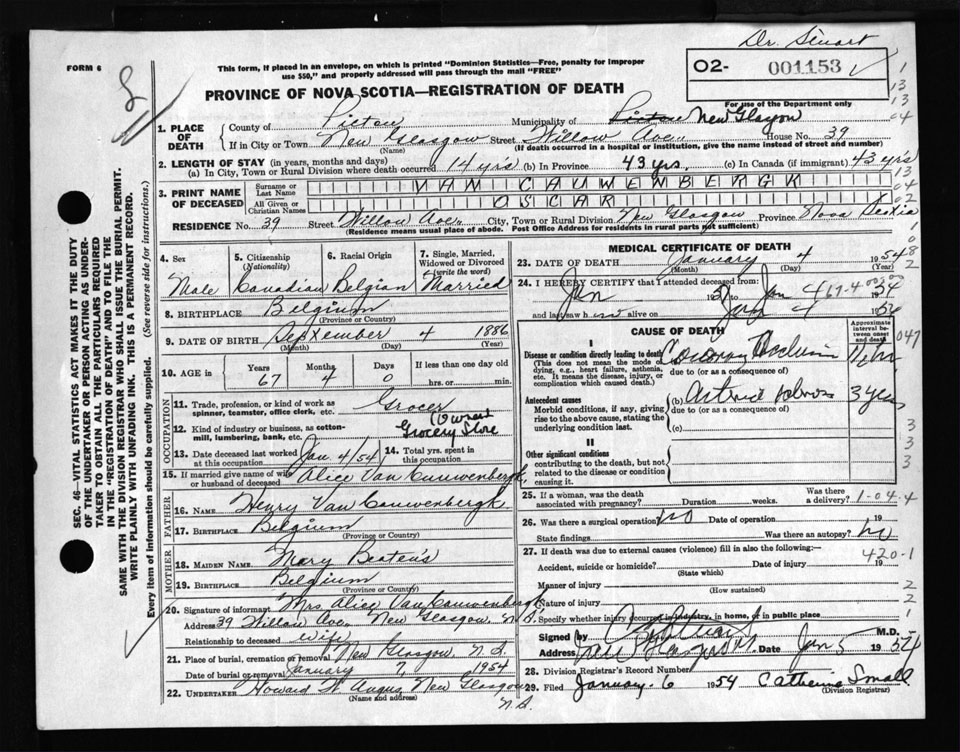 Dr. Stewart
FORM 6
This form, if placed in an envelope, on which is printed "Dominion Statistics—Free, penalty for improper
use $50," and properly addressed will pass through the mail "FREE"
O2- 001153
PROVINCE OF NOVA SCOTIA—REGISTRATION OF DEATH
For use of the Department only
1. PLACE OF DEATH
County of Pictou Municipality of Pictou New Glasgow
If in City or Town New Glasgow Street Willow Ave. House No. 39
(Name) (If death occurred in a hospital or institution, give the name instead of street and number)
2. LENGTH OF STAY (in years, months and days)
(a) In City, Town or Rural Division where death occurred 14 yrs (b) In Province 43 yrs. (c) In Canada (if immigrant) 43 yrs
3. PRINT NAME OF DECEASED
Surname or Last Name VAN CAUWENBERGK
All Given or Christian Names OSCAR
RESIDENCE No. 39 Street Willow Ave. City, Town or Rural Division New Glasgow Province Nova Scotia
(Residence means usual place of abode. Post Office Address for residents in rural parts not sufficient)
4. Sex
Male
5. Citizenship
(Nationality)
Canadian
6. Racial Origin
Belgian
7. Single, Married, Widowed or Divorced
(write the word)
Married
8. BIRTHPLACE Belgium
(Province or Country)
9. DATE OF BIRTH September 4 1886
(Month) (Day) (Year)
10. AGE in Years Months Days If less than one day old
67 4 0 hrs. or min.
OCCUPATION
11. Trade, profession, or kind of work as
spinner, teamster, office clerk, etc. Grocer
12. Kind of industry or business, as cotton-
mill, lumbering, bank, etc. (Own Grocery Store
13. Date deceased last worked
at this occupation Jan. 4/54
14. Total yrs. spent in
this occupation
15. If married give name of wife
or husband of deceased Alice Van Cauwenbergk
FATHER
16. NAME Henry Van Cauwenbergk
17. BIRTHPLACE Belgium
(Province or Country)
MOTHER
18. MAIDEN NAME Mary Beaten's
19. BIRTHPLACE Belgium
(Province or Country)
20. Signature of informant Mrs Alice Van Cauwenbergk
Address 39 Willow Ave. New Glasgow, N.S.
Relationship to deceased wife
21. Place of burial, cremation or removal New Glasgow, N.S.
Date of burial or removal January 7, 1954
22. UNDERTAKER Howard W Angus New Glasgow
(Name and address) N.S.
MEDICAL CERTIFICATE OF DEATH
23. DATE OF DEATH January 4 1954
(Month) (Day) (Year)
24. I HEREBY CERTIFY that I attended deceased from:
Jan to Jan 4 1954
and last saw him alive on 4 1954
CAUSE OF DEATH
Approximate interval between onset and death
I
Disease or condition directly leading to death
(This does not mean the mode of
dying, e.g., heart failure, asthenia,
etc. It means the disease, injury, or
complication which caused death.)
(a) Coronary Occlusion
due to (or as a consequence of)
Antecedent causes
Morbid conditions, if any, giving
rise to the above cause, stating the
underlying condition last.
(b) 3 years
due to (or as a consequence of)
(c)
II
Other significant conditions
contributing to the death, but not
related to the disease or condition
causing it.
25. If a woman, was the death
associated with pregnancy? Duration weeks. Was there a delivery?
1-04.4
26. Was there a surgical operation? no Date of operation 19
State findings Was there an autopsy? no
27. If death was due to external causes (violence) fill in also the following:—
420-1
Accident, suicide or homicide? Date of injury 19
(State which)
Manner of injury
(How sustained)
Nature of injury
Specify whether injury occurred in industry, in home, or in public place
Signed by M.D.
Address New Glasgow Date Jan 5 1954
28. Division Registrar's Record Number
29. Filed January 6 1954 Catherine Small
(Division Registrar)
SEC. 46—VITAL STATISTICS ACT MAKES IT THE DUTY
OF THE UNDERTAKER OR PERSON ACTING AS UNDER-
TAKER TO OBTAIN ALL THE PARTICULARS REQUIRED
IN THE "REGISTRATION OF DEATH" AND TO FILE THE
SAME WITH THE DIVISION REGISTRAR WHO SHALL ISSUE THE BURIAL PERMIT.
WRITE PLAINLY WITH UNFADING INK. THIS IS A PERMANENT RECORD.
Every item of information should be carefully supplied. (See reverse side for instructions.)